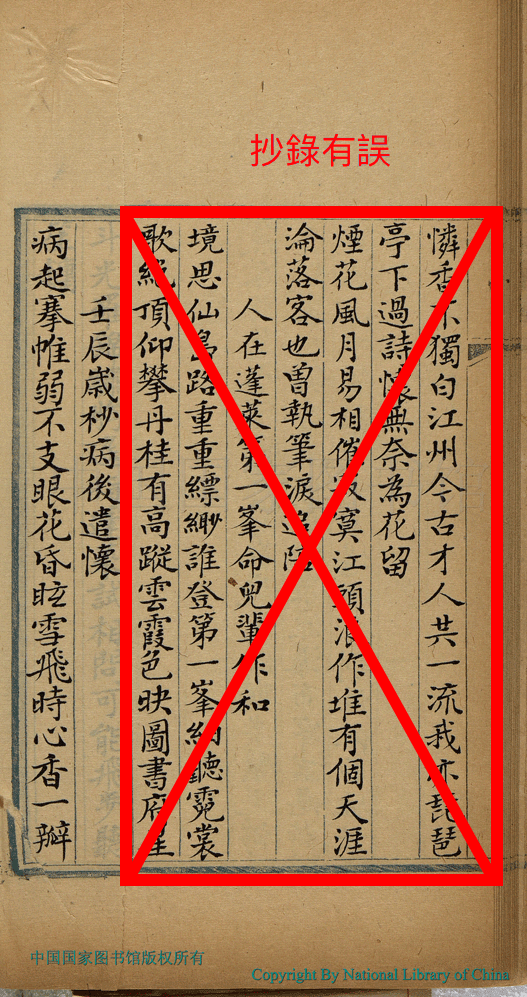 抄錄有誤
憐香不獨白江州今古才人共一流我亦琵琶
亭下過詩懷無奈為花留
煙花風月易相催寂寞江頭浪作堆有個天涯
淪落客也曾執筆淚追陪
人在蓬萊第一峯命兒輩作和
境思仙島路重重縹緲誰登第一峯細聽霓裳
歌絶頂仰攀丹桂有高蹤雲霞色映圖書府星
壬辰歲杪病後遣懷
病起搴帷弱不支眼花昏眩雪飛時心香一瓣
中国国家图书馆版权所有
Copyright By National Library of China